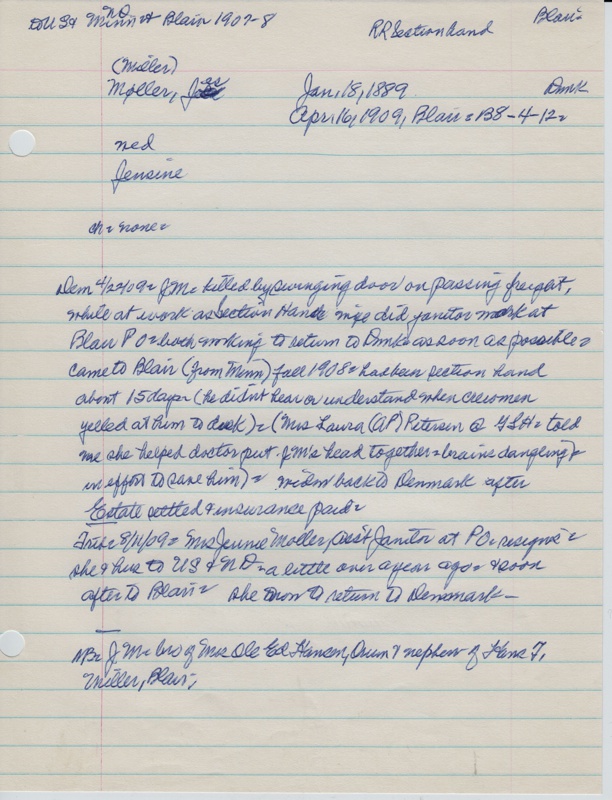 to US & Minn & Blair 1907-8 RR Section hand Blair=
ND
(Miller)
Møller, Jas Jan, 18, 1889 Dmk
Apr, 16, 1909, Blair = B8-4-12=
med
Jensine
ch = none =
Dem 4/22/09 = J.M. killed by swinging door on passing freight,
while at work as Section Hand wife did janitor work at
Blair P O = both working to return to Dmk as soon as possible =
came to Blair (from Minn) fall 1908 = had been section hand
about 15 days (he didn't hear or understand when crewmen
yelled at him to duck) = (Mrs Laura (AP) Petersen @ GLH = told
me she helped doctor put J.M's head together = brains dangling =
in effort to save him) = widow back to Denmark after
Estate settled & insurance paid =
Trib = 8/11/09 = Mrs Jennie Moller, asst Janitor at P O = resigns =
she & hus to US & ND = a little over a year ago = & soon
after to Blair = she now to return to Denmark -
NB = J.M = bro of Mrs Ole Ed Hansen, Orum & nephew of Hans T,
Miller, Blair,